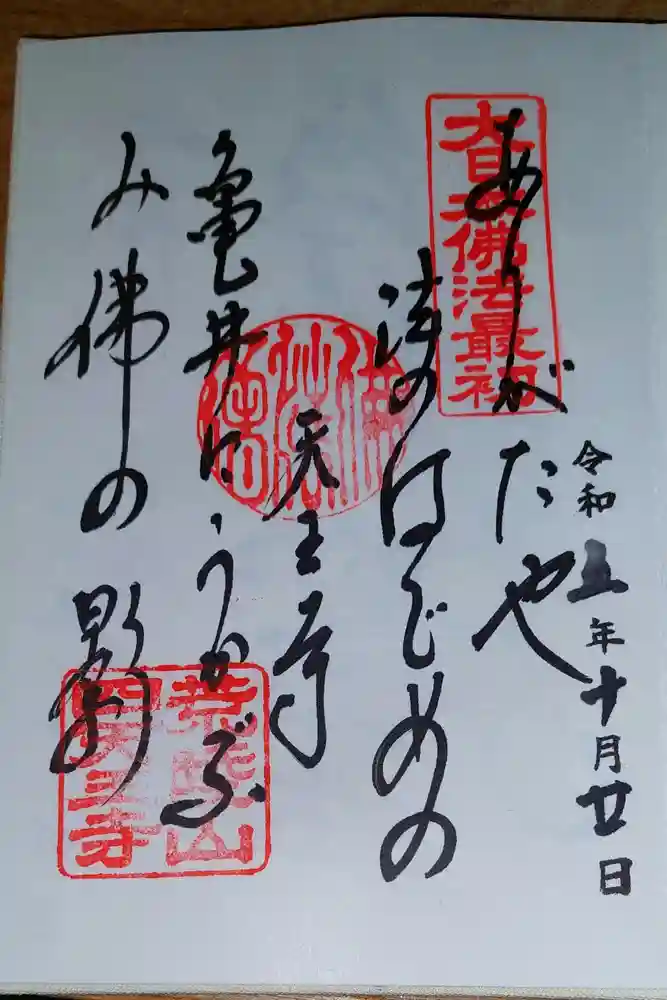 令和五年十月廿日
大日本佛法最初
ありがたや
法のはじめの
天王寺
亀井にうかぶ
み佛の影
荒陵山
四天王寺